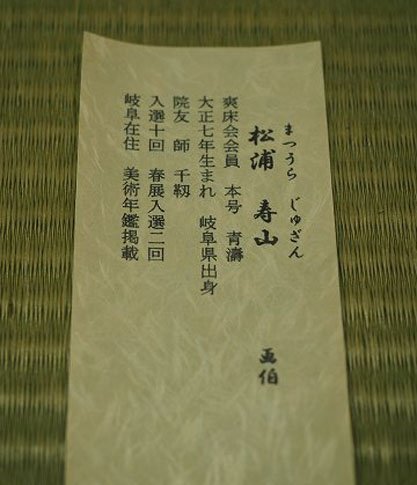 まつうら じゅざん
松浦 寿山 画伯
爽床会会員 本号 青濤
大正七年生まれ 岐阜県出身
院友 師 千靱
入選十回 春展入選二回
岐阜在住 美術年鑑掲載